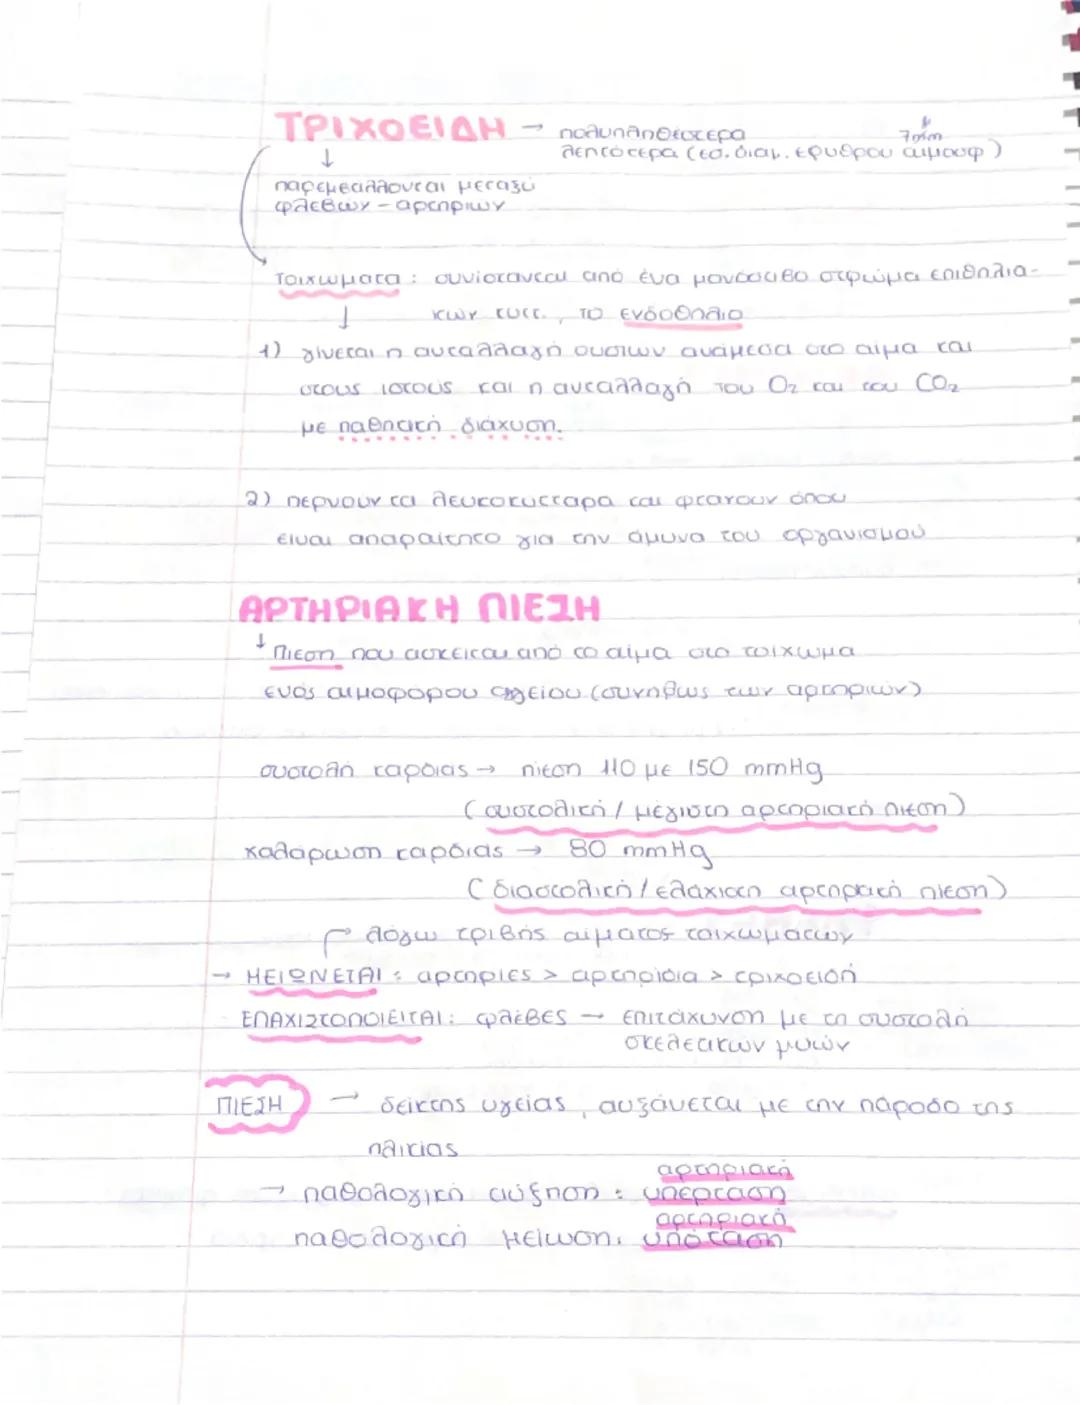 ΤΡΙΧΟΕΙΔΗ → πολυπληθέστερα
7mm
λεπτότερα (εσ. διαμ. ερυθρού αιμοσφ)
↓
παρεμβάλλονται μεταξύ
φλεβών - αρτηριών
Τοιχώματα : συνίστανται από ένα μονόστιβο στρώμα επιθηλια-
κών κυττ., το ενδοθήλιο
↓
1) γίνεται η ανταλλαγή ουσιών ανάμεσα στο αίμα και
στους ιστούς και η ανταλλαγή του O₂ και του CO₂
με παθητική διάχυση.
2) περνουν τα λευκοκυτταρα και φτανουν όπου
ειναι απαραίτητο για την άμυνα του οργανισμού
ΑΡΤΗΡΙΑΚΗ ΠΙΕΣΗ
↓ Πιεση που ασκειται από το αίμα στο τοίχωμα
ενός αιμοφόρου αγγείου (συνήθως των αρτηριών)
συστολή καρδιάς → πιεση 110 με 150 mmHg
(συστολική / μέγιστη αρτηριακή πιεση)
χαλάρωση καρδιας → 80 mmHg
(διαστολική / ελάχιστη αρτηριακή πιεση)
λόγω τριβής αίματος τοιχωμάτων
→ ΜΕΙΩΝΕΤΑΙ : αρτηριες > αρτηρίδια > τριχοειδή
ΕΛΑΧΙΣΤΟΠΟΙΕΙΤΑΙ : φλέβες → επιτάχυνση με τη συστολή
σκελετικών μυών
ΠΙΕΣΗ → δείκτης υγείας, αυξάνεται με την πάροδο της
ηλικίας
αρτηριακή
→ παθολογική αύξηση : υπέρταση
αρτηριακή
παθολογική μείωση : υπόταση